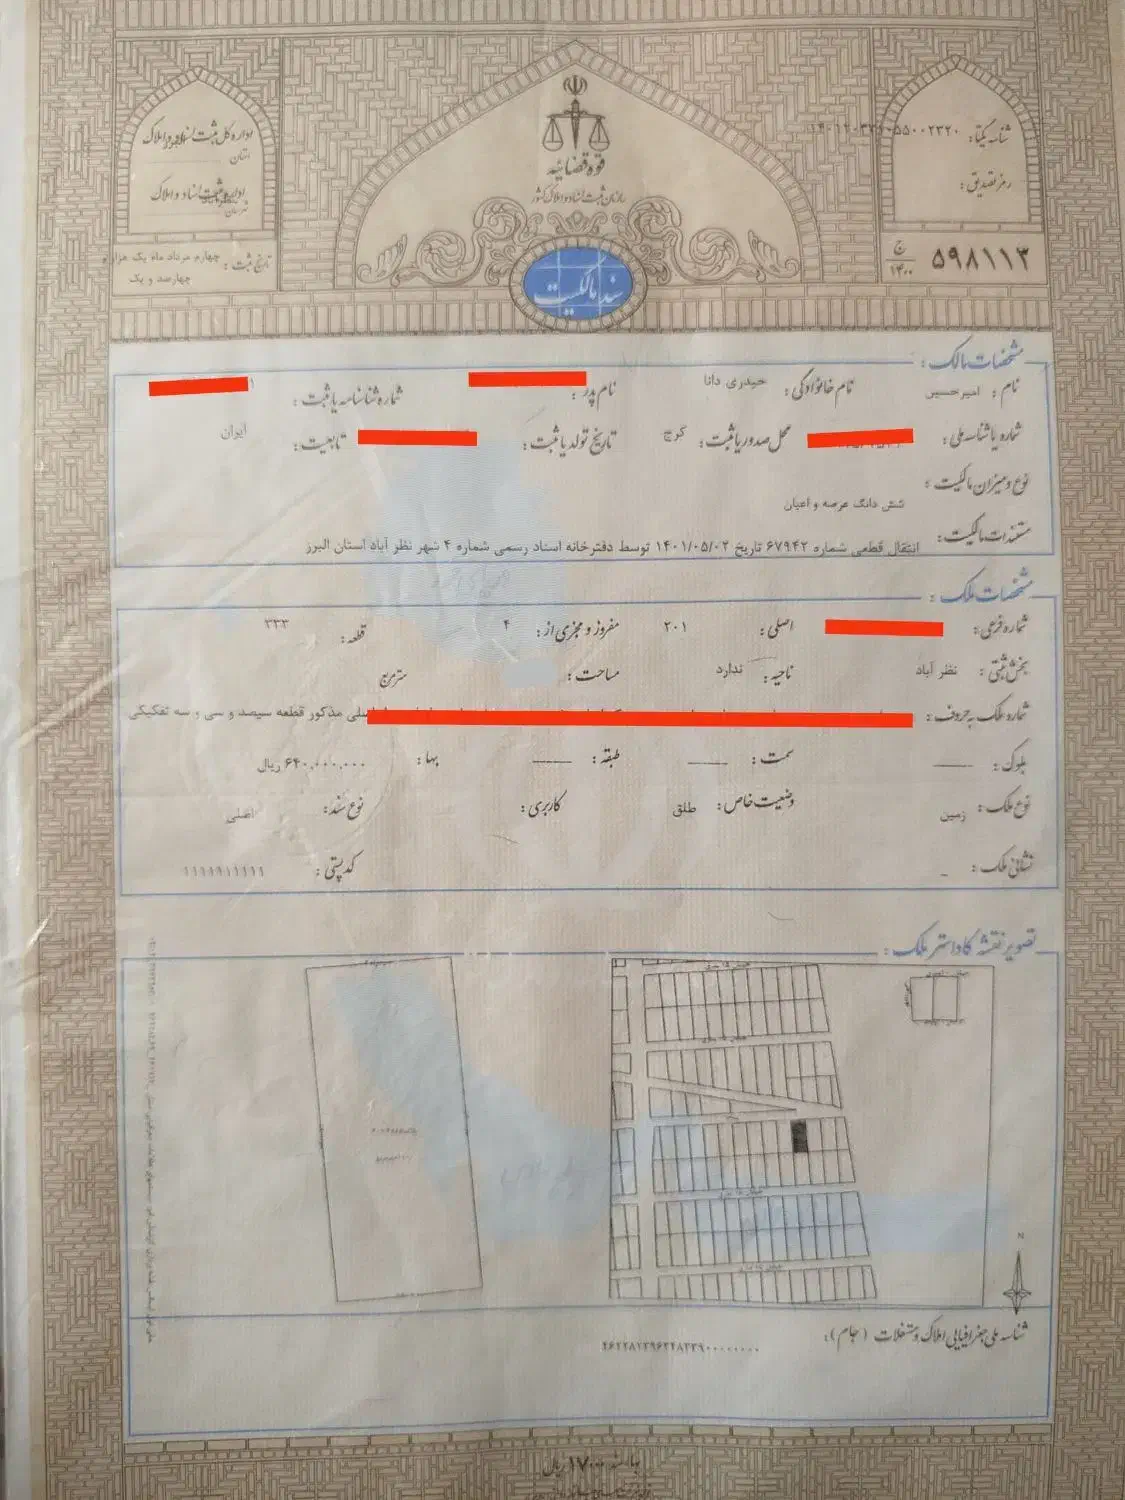 قوه قضائیه
سازمان ثبت اسناد و املاک کشور
سند مالکیت
شناسه یکتا:
رمز تصدیق:
۵۹۸۱۱۳ ج ۱۴۰۰
اداره کل ثبت اسناد و املاک
استان
اداره ثبت اسناد و املاک
تاریخ ثبت: چهارم مرداد ماه یک هزار و
چهارصد و یک
مشخصات مالک:
نام: امیرحسین نام خانوادگی: حیدری دانا نام پدر: شماره شناسنامه یا ثبت:
شماره یا شناسه ملی: محل صدور یا ثبت: کرج تاریخ تولد یا ثبت: تابعیت: ایران
نوع و میزان مالکیت:
شش دانگ عرصه و اعیان
مستندات مالکیت: انتقال قطعی شماره ۶۷۹۴۲ تاریخ ۱۴۰۱/۰۵/۰۲ توسط دفترخانه اسناد رسمی شماره ۴ شهر نظر آباد استان البرز
مشخصات ملک:
شماره فرعی: اصلی: ۲۰۱ مفروز و مجزی از: ۴ قطعه: ۳۳۳
بخش ثبتی: نظر آباد ناحیه: ندارد مساحت: مترمربع
شماره ملک به حروف: اصلی مذکور قطعه سیصد و سی و سه تفکیکی
بلوک: سمت: طبقه: بها: ۶۴۰,۰۰۰,۰۰۰ ریال
نوع ملک: زمین وضعیت خاص: طلق کاربری: نوع سند: اصلی
نشانی ملک: _ کد پستی: ۱۱۱۱۹۱۱۱۱۱
تصویر نقشه کاداستر ملک:
N
شناسه ملی جغرافیایی املاک و مستغلات (جام):
بهاء سند ۱۷۰۰۰ ریال